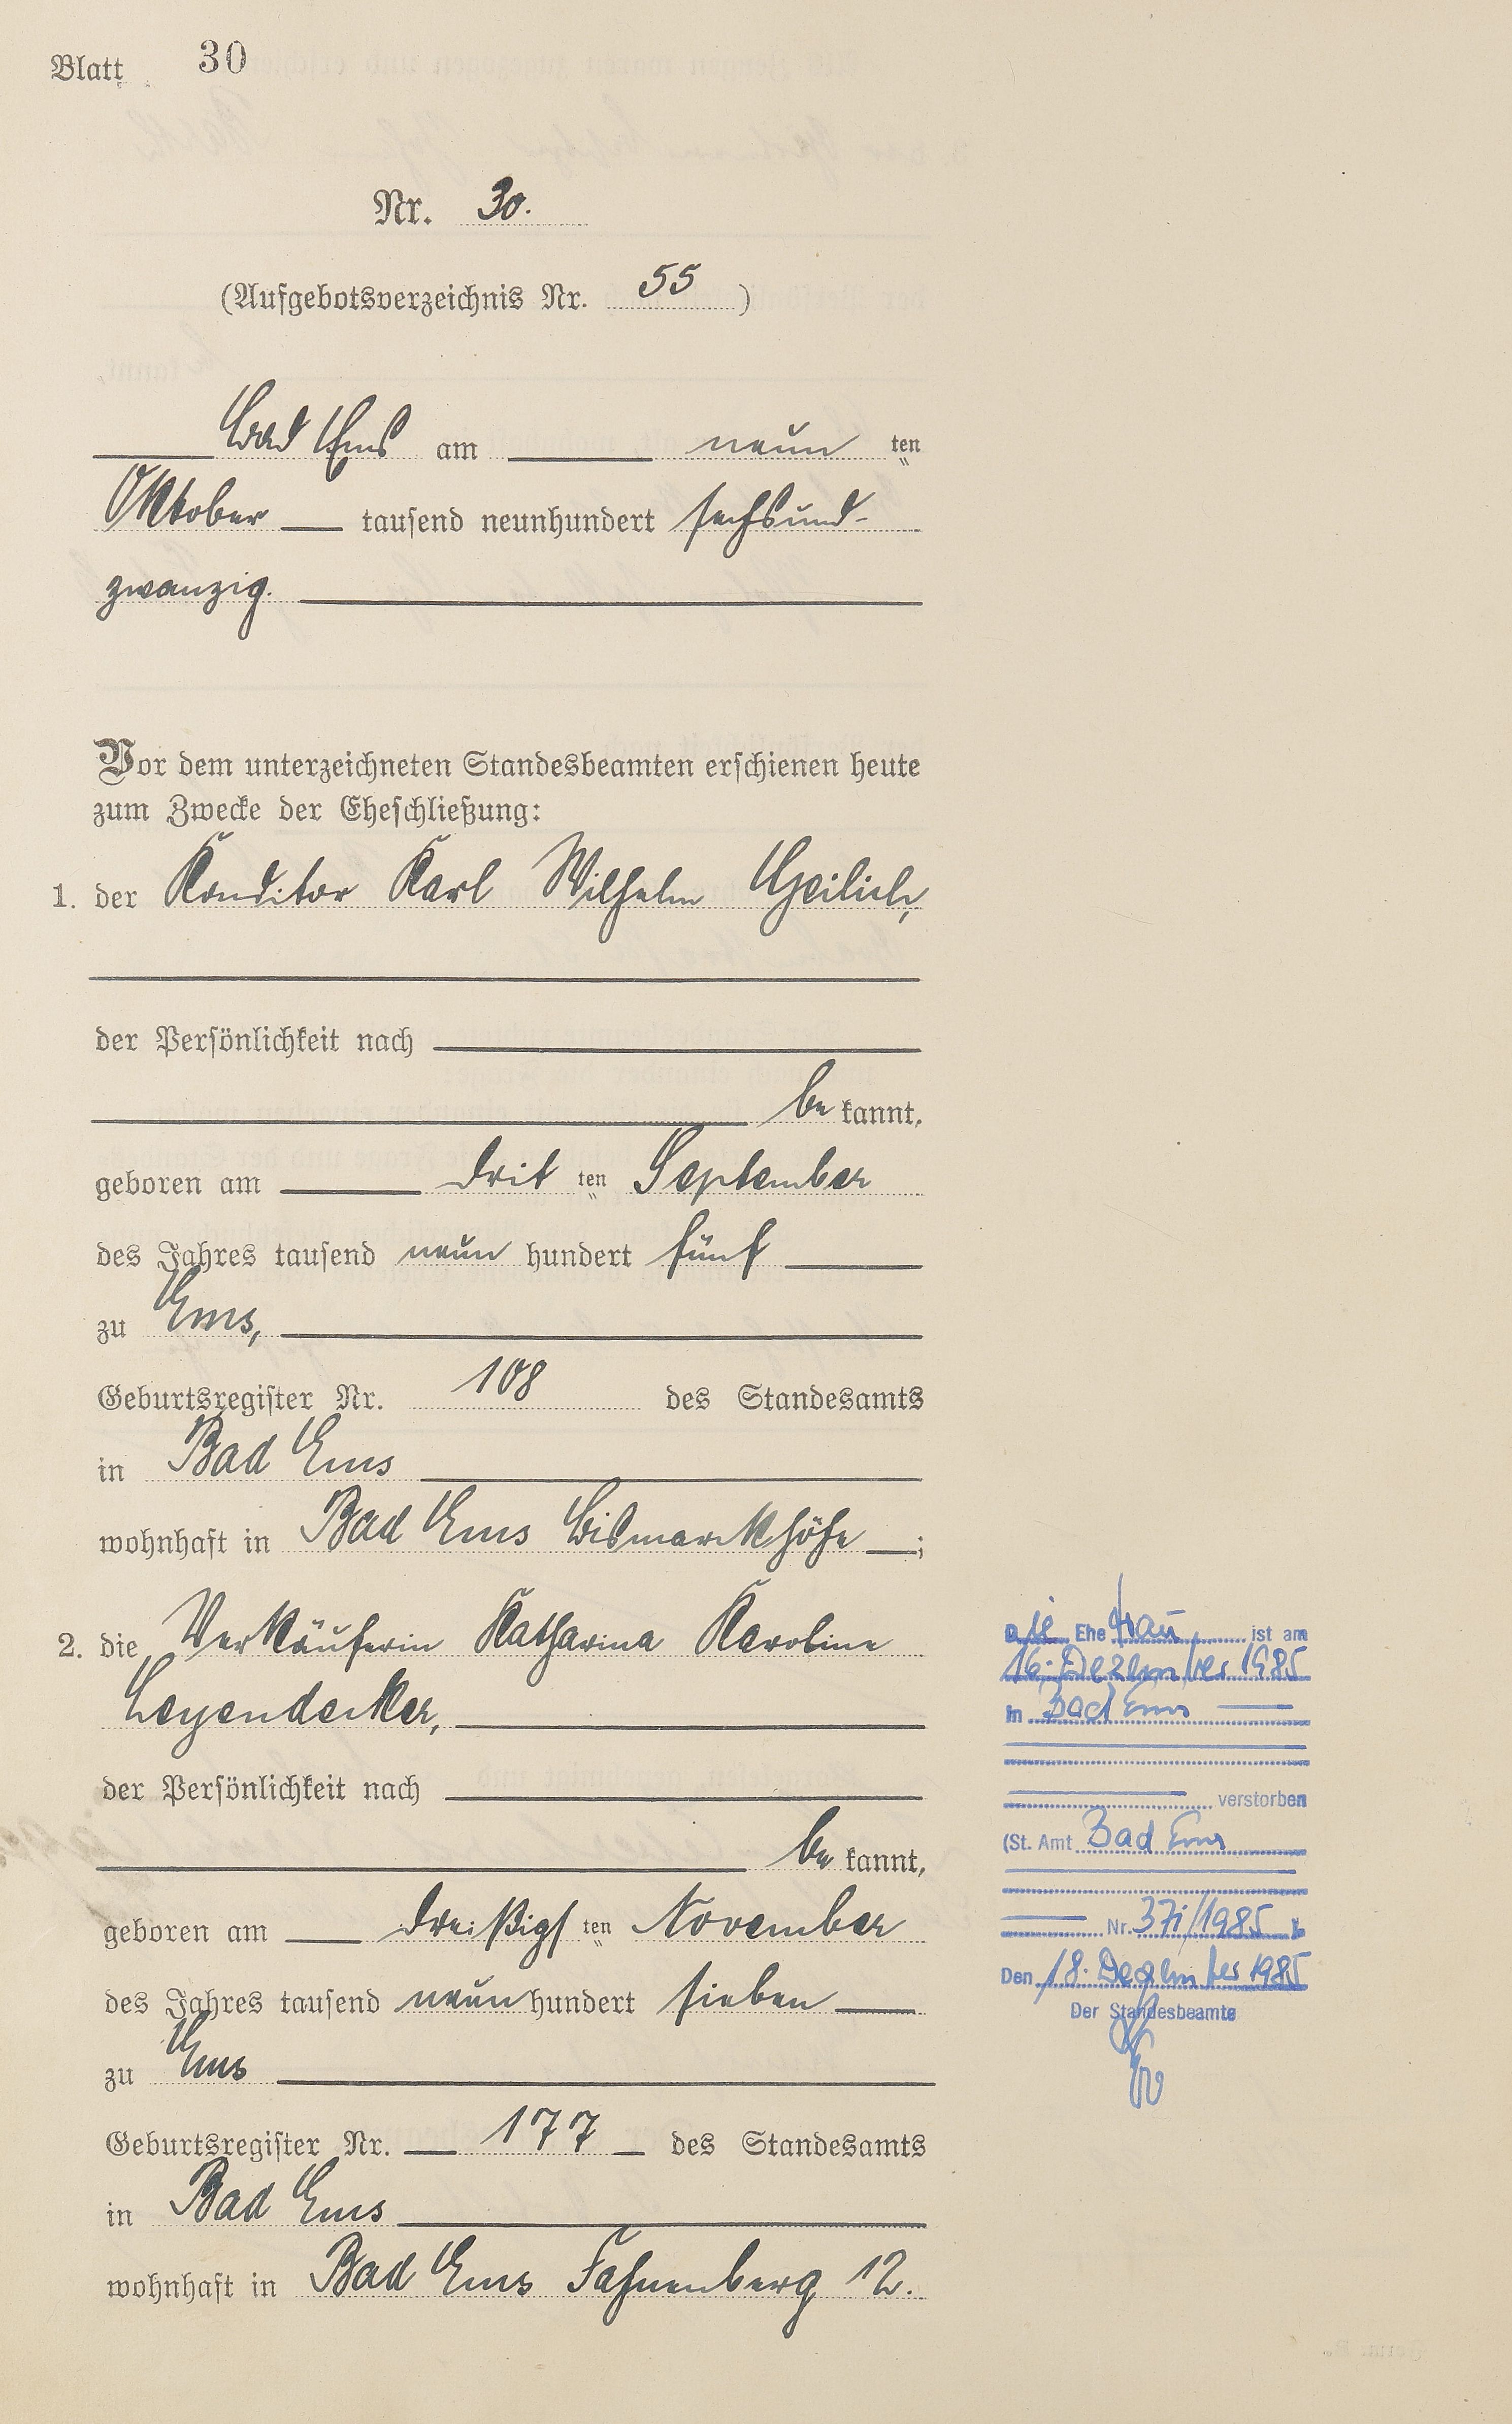 Blatt 30
Nr. 30.
(Aufgebotsverzeichnis Nr. 55)
Bad Ems am neun ten
Oktober tausend neunhundert sechsund-
zwanzig.
Vor dem unterzeichneten Standesbeamten erschienen heute
zum Zwecke der Eheschließung:
1. der Konditor Karl Wilhelm Heilich,
der Persönlichkeit nach
be kannt,
geboren am drit ten September
des Jahres tausend neun hundert fünf
zu Ems,
Geburtsregister Nr. 108 des Standesamts
in Bad Ems
wohnhaft in Bad Ems Bismarckhöhe ;
2. die Verkäuferin Katharina Karoline
Leyendecker,
der Persönlichkeit nach
be kannt,
geboren am dreißigs ten November
des Jahres tausend neun hundert sieben
zu Ems
Geburtsregister Nr. 177 des Standesamts
in Bad Ems
wohnhaft in Bad Ems Fahnenberg 12.
Die Ehefrau ist am
16. Dezember 1985
in Bad Ems
verstorben
(St. Amt Bad Ems
Nr. 371/1985
Den 18. Dezember 1985
Der Standesbeamte